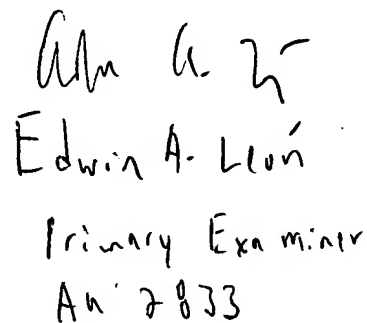 Edwin A. León
Primary Examiner
AU 2833